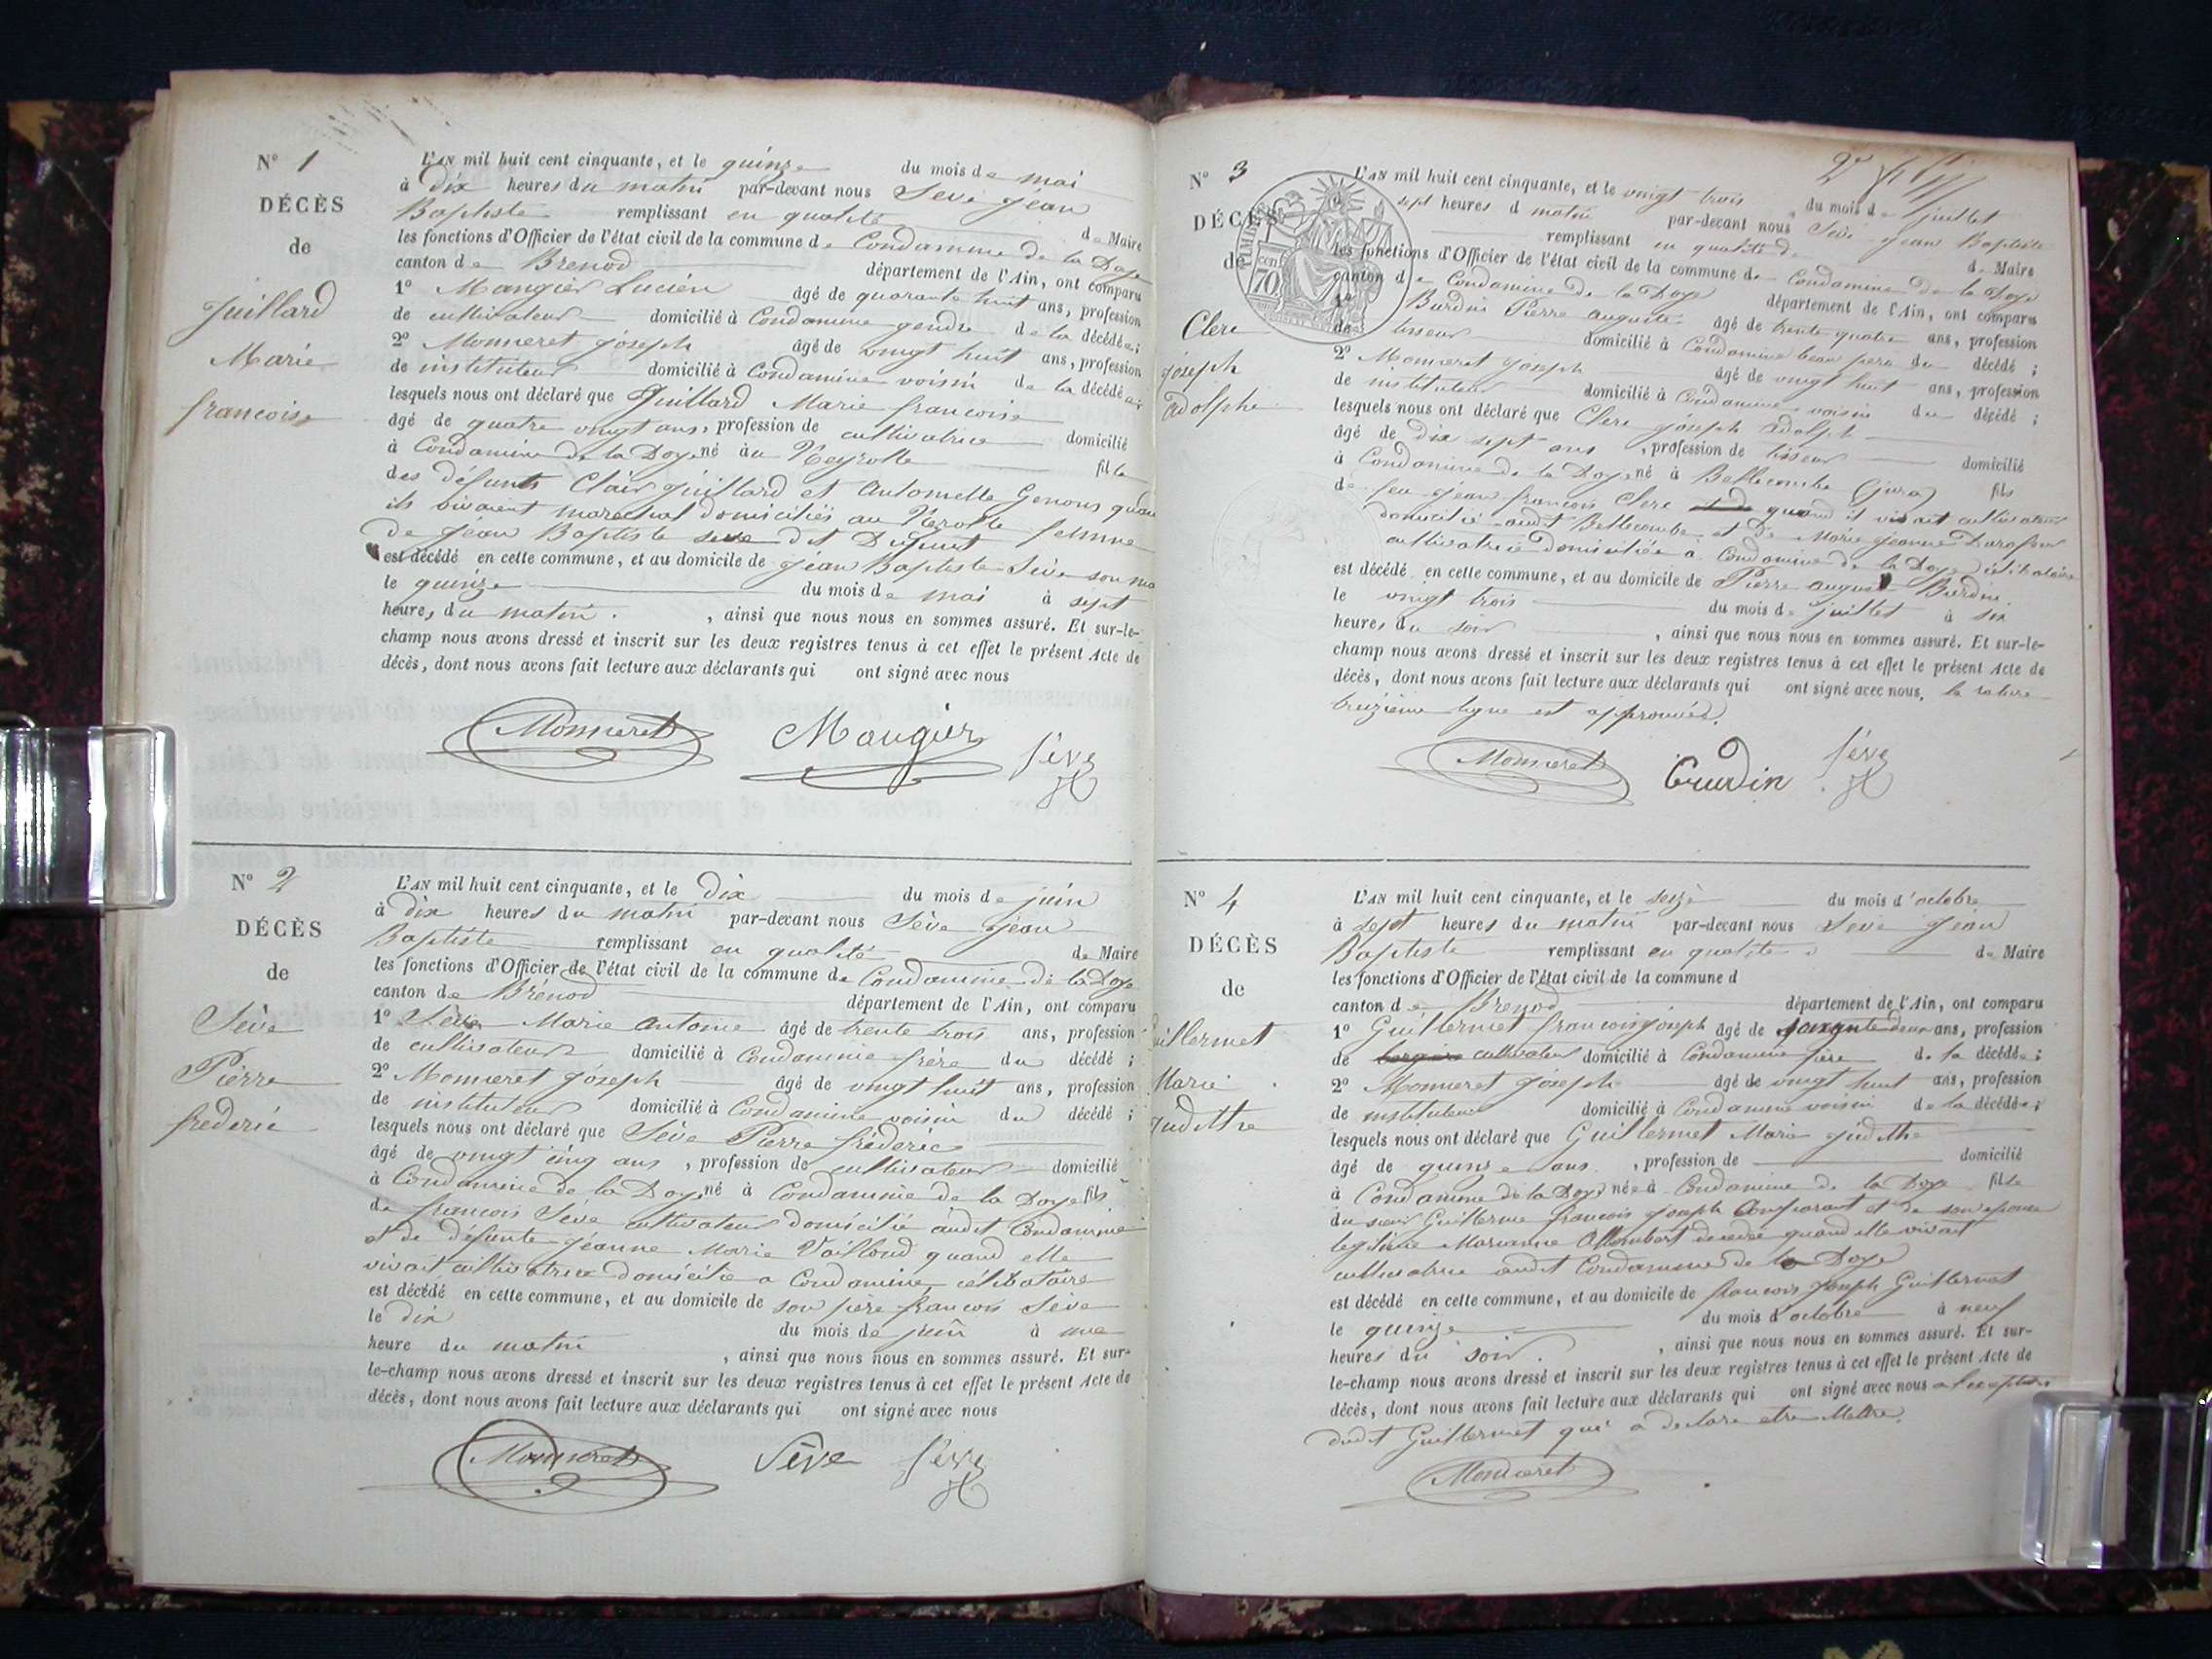 N° 1
DÉCÈS
de
Juillard
Marie
francoise
L'AN mil huit cent cinquante, et le quinze du mois de mai
à dix heures du matin par-devant nous Sève jean
Baptiste remplissant en qualité de Maire
les fonctions d'Officier de l'état civil de la commune de Condamine de la Doye
canton de Brenod département de l'Ain, ont comparu
1° Mangier Lucien âgé de quarante huit ans, profession
de cultivateur domicilié à Condamine gendre de la décédée;
2° Monneret joseph âgé de vingt huit ans, profession
de instituteur domicilié à Condamine voisin de la décédée;
lesquels nous ont déclaré que Juillard Marie francoise
âgé de quatre vingt ans, profession de cultivatrice domicilié
à Condamine de la Doye né au Neyrolle fille
des défunts Clair juillard et Antoinette Genous quan
ils vivaient marechal domiciliés au Nerolle femme
de jean Baptiste seve dit Dupuit
est décédé en cette commune, et au domicile de jean Baptiste Sève son ma
le quinze du mois de mai à sept
heures du matin. , ainsi que nous nous en sommes assuré. Et sur-le-
champ nous avons dressé et inscrit sur les deux registres tenus à cet effet le présent Acte de
décès, dont nous avons fait lecture aux déclarants qui ont signé avec nous
Monneret Mangier Sève
N° 2
DÉCÈS
de
Sève
Pierre
frederic
L'AN mil huit cent cinquante, et le dix du mois de juin
à dix heures du matin par-devant nous Sève jean
Baptiste remplissant en qualité de Maire
les fonctions d'Officier de l'état civil de la commune de Condamine de la Doye
canton de Brénod département de l'Ain, ont comparu
1° Sève Marie Antoine âgé de trente trois ans, profession
de cultivateur domicilié à Condamine frère du décédé;
2° Monneret joseph âgé de vingt huit ans, profession
de instituteur domicilié à Condamine voisin du décédé;
lesquels nous ont déclaré que Sève Pierre fréderic
âgé de vingt cinq ans, profession de cultivateur domicilié
à Condamine de la Doye né à Condamine de la Doye fils
de francois Sève cultivateur domicilié audit Condamine
et de défunte jeanne Marie Vailloud quand elle
vivait cultivatrice domicilie a Condamine, célibataire
est décédé en cette commune, et au domicile de son père francois Sève
le dix du mois de juin à une
heure du matin , ainsi que nous nous en sommes assuré. Et sur-
le-champ nous avons dressé et inscrit sur les deux registres tenus à cet effet le présent Acte de
décès, dont nous avons fait lecture aux déclarants qui ont signé avec nous
Monneret Sève Sève
N° 3
DÉCÈS
de
Clerc
joseph
adolphe
L'AN mil huit cent cinquante, et le vingt trois du mois de juillet
sept heures d matin par-devant nous Sève jean Baptiste
remplissant en qualité de de Maire
les fonctions d'Officier de l'état civil de la commune de Condamine de la Doye
canton de Condamine de la Doye département de l'Ain, ont comparu
1° Burdin Pierre auguste âgé de trente quatre ans, profession
de tisseur domicilié à Condamine beau pere du décédé;
2° Monneret joseph âgé de vingt huit ans, profession
de instituteur domicilié à Condamine voisin du décédé;
lesquels nous ont déclaré que Clerc joseph adolph
âgé de dix sept ans, profession de tisseur domicilié
à Condamine de la Doye né à Bellecombe (jura) fils
de feu jean francois Clerc quand il vivait cultivateur
domicilié audit Bellecombe et de Marie jeanne
cultivatrice domiciliée a Condamine de la Doye célibataire
est décédé en cette commune, et au domicile de Pierre auguste Burdin
le vingt trois du mois de juillet à six
heures du soir , ainsi que nous nous en sommes assuré. Et sur-le-
champ nous avons dressé et inscrit sur les deux registres tenus à cet effet le présent Acte de
décès, dont nous avons fait lecture aux déclarants qui ont signé avec nous. la rature
treizième ligne est approuvée.
Monneret Burdin Sève
N° 4
DÉCÈS
de
uillermet
Marie
Judithe
L'AN mil huit cent cinquante, et le seize du mois d'octobre
à sept heures du matin par-devant nous Seve jean
Baptiste remplissant en qualité d de Maire
les fonctions d'Officier de l'état civil de la commune d
canton de Brenod département de l'Ain, ont comparu
1° Guillermet francois joseph âgé de soixante deux ans, profession
de cultivateur domicilié à Condamine père de la décédée;
2° Monneret joseph âgé de vingt huit ans, profession
de instituteur domicilié à Condamine voisin de la décédée;
lesquels nous ont déclaré que Guillermet Marie judithe
âgé de quinze ans, profession de domicilié
à Condamine de la Doye née à Condamine de la Doye fille
du sieur Guillerme francois joseph Comparant et de son epouse
legitime Marianne Allombert decedée quand elle vivait
cultivatrice audit Condamine de la Doye
est décédé en cette commune, et au domicile de francois joseph Guillermet
le quinze du mois d'octobre à neuf
heures du soir. , ainsi que nous nous en sommes assuré. Et sur-
le-champ nous avons dressé et inscrit sur les deux registres tenus à cet effet le présent Acte de
décès, dont nous avons fait lecture aux déclarants qui ont signé avec nous a l'exception
dudit Guillermet qui a declare etre illettré.
Monneret